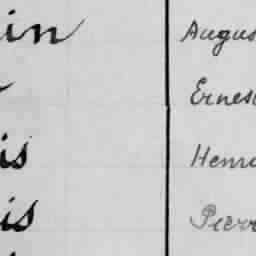 in Augus
Ernes
is Henr
is Pierr